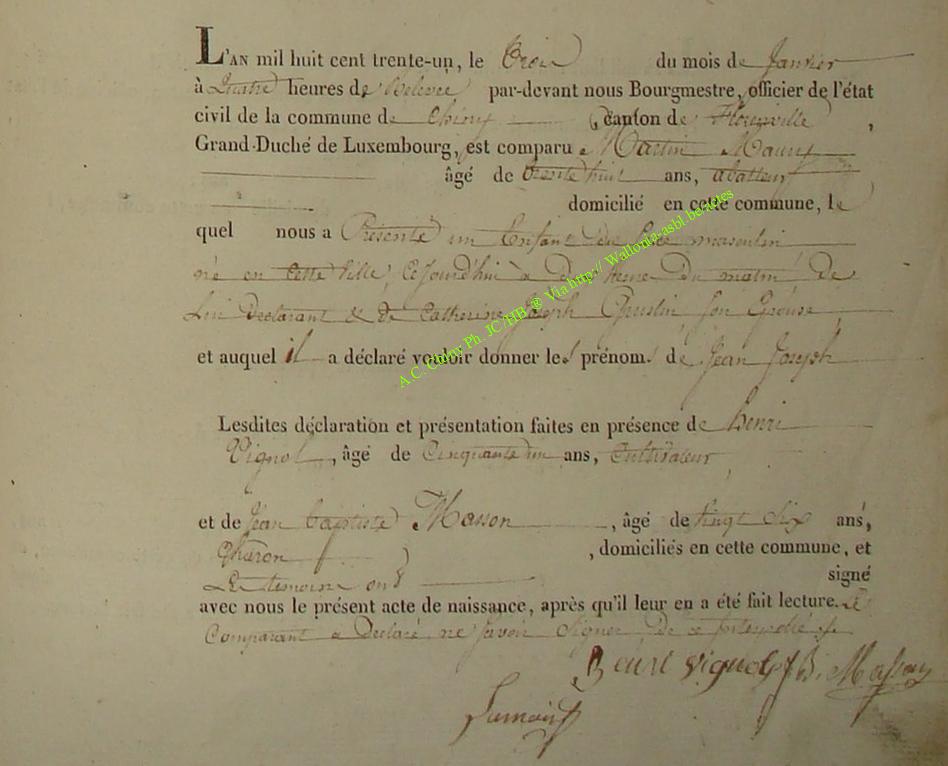 L'AN mil huit cent trente-un, le trois du mois de Janvier
à Quatre heures de Relevée par-devant nous Bourgmestre, officier de l'état
civil de la commune de Chiny, canton de Florenville,
Grand-Duché de Luxembourg, est comparu Martin Maury
âgé de trente huit ans, abatteur
domicilié en cette commune, le
quel nous a Présenté un Enfant du Sexe masculin
né en cette Ville, Cejourd'hui à heure du matin de
Lui Declarant & de Catherine Joseph Son Epouse
et auquel il a déclaré vouloir donner les prénoms de Jean Joseph
Lesdites déclaration et présentation faites en présence de henri
Vignol, âgé de Cinquante un ans, Cultivateur,
et de Jean baptiste Masson, âgé de vingt Six ans,
Charon, domiciliés en cette commune, et
Les temoins ont signé
avec nous le présent acte de naissance, après qu'il leur en a été fait lecture. Le
Comparant a Declaré ne Savoir Signer De ce Interpellé
henri vignol J B. Masson
A.C. Chiny Ph. JC/HB ® Via http:// Wallonia-asbl.be/etes